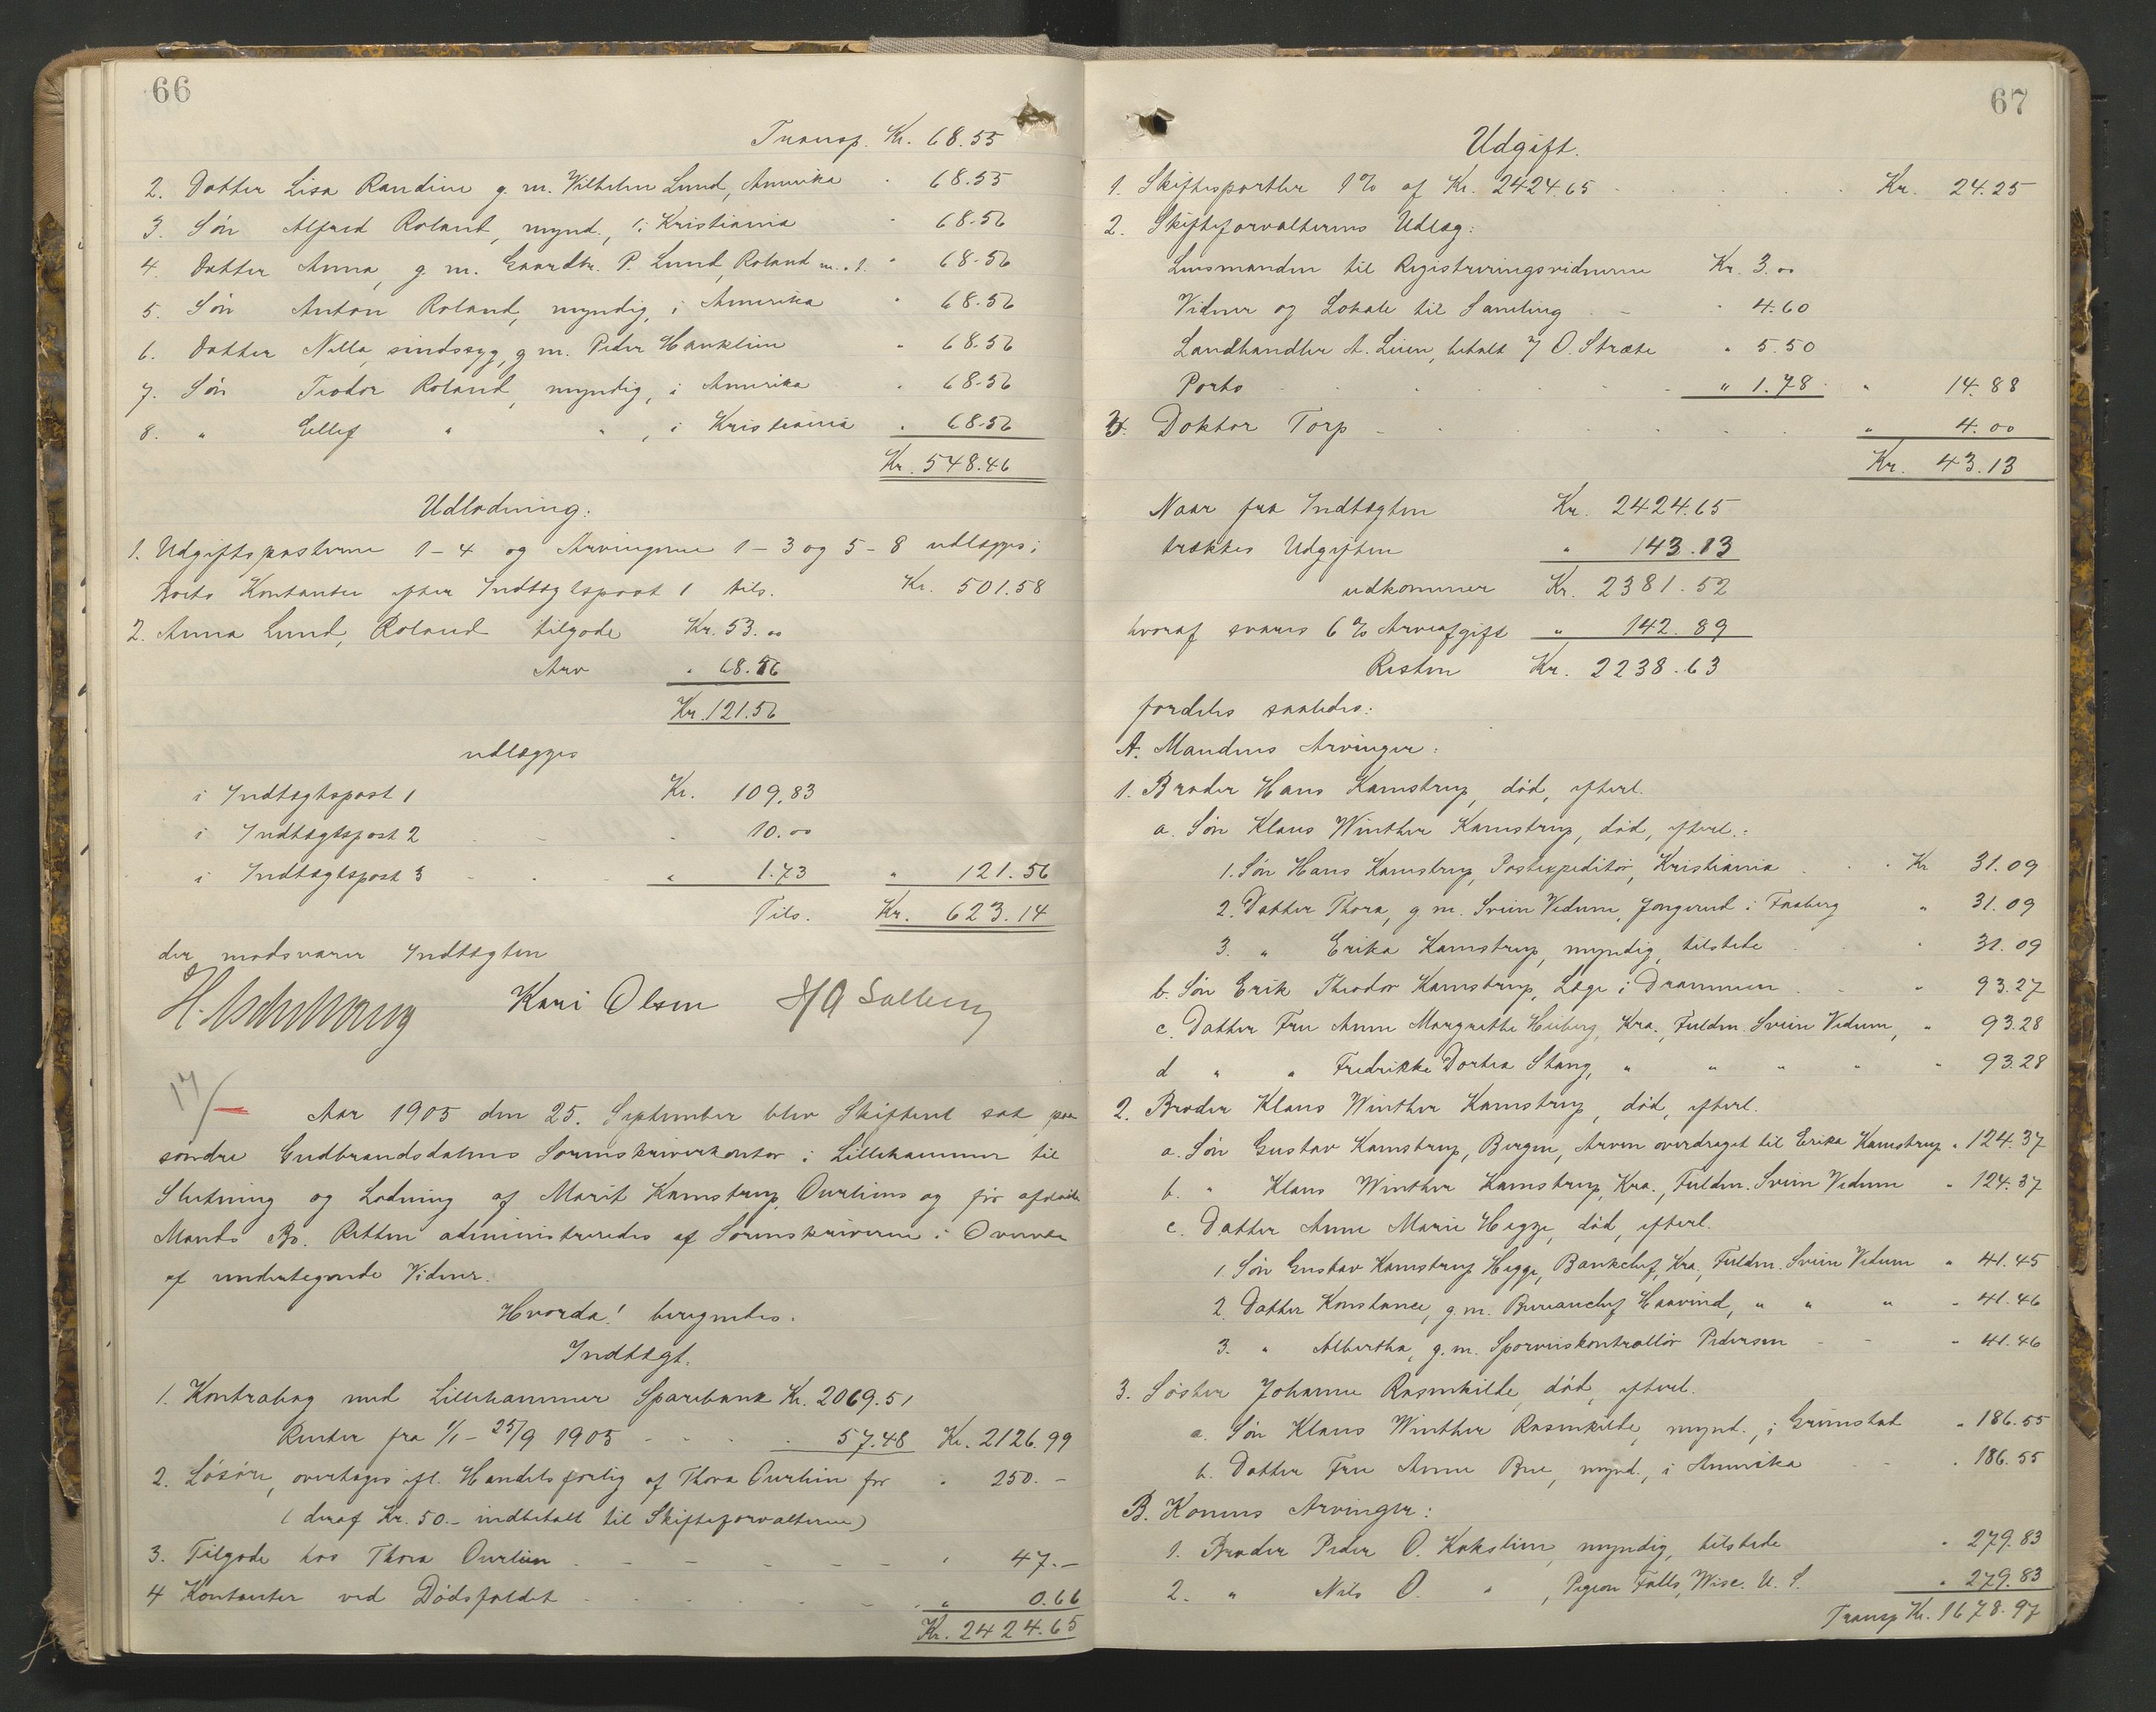 66
Transp. Kr. 68.55
2. Datter Lisa Randine g. m. Vilhelm Lund, Amerika " 68.55
3. Søn Alfred Roland, mynd., i Kristiania " 68.56
4. Datter Anna, g. m. Gaardbr. P. Lund, Roland " 68.56
5. Søn Anton Roland, myndig, i Amerika " 68.56
6. Datter Nilla, sindssyg, g m. Peder Hauklien " 68.56
7. Søn Teodor Roland, myndig, i Amerika " 68.56
8. " Ellef " " , i Kristiania " 68.56
Kr. 548.46
Udlodning:
1. Udgiftsposterne 1-4 og Arvingerne 1-3 og 5-8 udlægges i
Boets Kontanter efter Indtægtspost 1 tils. Kr. 501.58
2. Anna Lund, Roland tilgode Kr. 53.00
Arv " 68.56
Kr. 121.56
udlægges
i Indtægtspost 1 Kr. 109.83
i Indtægtspost 2 - - 10.00
i Indtægtspost 3 - - - " 1.73 " 121.56
Tils. Kr. 623.14
der modsvarer Indtægten
Kari Olsen HA Solberg
17/-
Aar 1905 den 25. September blev Skifteret sat paa
søndre Gudbrandsdalens Sorenskriverkontor i Lillehammer til
Slutning og Lodning af Marit Kamstrup, Ourliens og før afdøde
Mands Bo. Retten administreredes af Sorenskriveren i Overvær
af undertegnede Vidner.
Hvorda! beregnedes.
Indtægt.
1. Kontrabog med Lillehammer Sparebank Kr. 2069.51
Renter fra 1/1 - 25/9 1905 - - - - 57.48 Kr. 2126.99
2. Løsøre, overtages ifl. Handelsforlig af Thora Ourlien for " 250.-
(deraf Kr. 50.- indbetalt til Skifteforvalteren)
3. Tilgode hos Thora Ourlien - - - - - - " 47.-
4 Kontanter ved Dødsfaldet - - - - - - " 0.66
Kr. 2424.65
67
Udgift.
1. Skiftesportler 1% af Kr. 2424.65 . . . . . Kr. 24.25
2. Skifteforvalterens Udlæg:
Lensmanden til Registreringsvidnerne Kr. 3.00
Vidner og Lokale til Samling - - " 4.60
Landhandler A. Lien, betalt O. Stræte " 5.50
Porto . . . - - - " 1.78. " 14.88
3. Doktor Torp - . . . . . . " 4.00
Kr. 43.13
Naar fra Indtægten Kr. 2424.65
trækkes Udgiften " 143.13
udkommer Kr. 2381.52
hvoraf svares 6% Arveafgift " 142.89
Resten Kr. 2238.63
fordeles saaledes:
A. Mandens Arvinger:
1. Broder Hans Kamstrup, død, efterl.
a. Søn Klaus Winther Kamstrup, død, efterl.:
1. Søn Hans Kamstrup, Postexpeditør, Kristiania . . . Kr 31.09
2. Datter Thora, g m. Svein Vedum, Jongerud i Faaberg " 31.09
3. " Erika Kamstrup, myndig, tilstede . . " 31.09
b. Søn Erik Theodor Kamstrup, Læge i Drammen . - " 93.27
c. Datter Fru Anne Margrethe Heiberg, Kra., Fuldm. Svein Vedum, " 93.28
d " " Fredrikke Dortea Stang, " " " " " 93.28
2. Broder Klaus Winther Kamstrup, død, efterl.
a. Søn Gustav Kamstrup, Bergen, Arven overdraget til Erika Kamstrup " 124.37
b. " Klaus Winther Kamstrup, Kra., Fuldm. Svein Vedum " 124.37
c. Datter Anne Marie Hegge, død, efterl.
1. Søn Gustav Kamstrup Hegge, Bankchef, Kra, Fuldm. Svein Vedum " 41.45
2. Datter Konstance, g. m. Bureauchef Haavind, " " " " 41.46
3. " Albertha, g. m. Sporveiskontrollør Pedersen - - " 41.46
3. Søster Johanne Rosenkilde, død, efterl.
a. Søn Klaus Winther Rosenkilde, mynd., i Grimstad " 186.55
b. Datter Fru Anne Bue, mynd., i Amerika - - " 186.55
B. Konens Arvinger:
1. Broder Peder O. Kokslien, myndig, tilstede " 279.83
2. " Nils O. " , Pigeon Falls, Wisc. U. S. " 279.83
Transp Kr. 1678.97